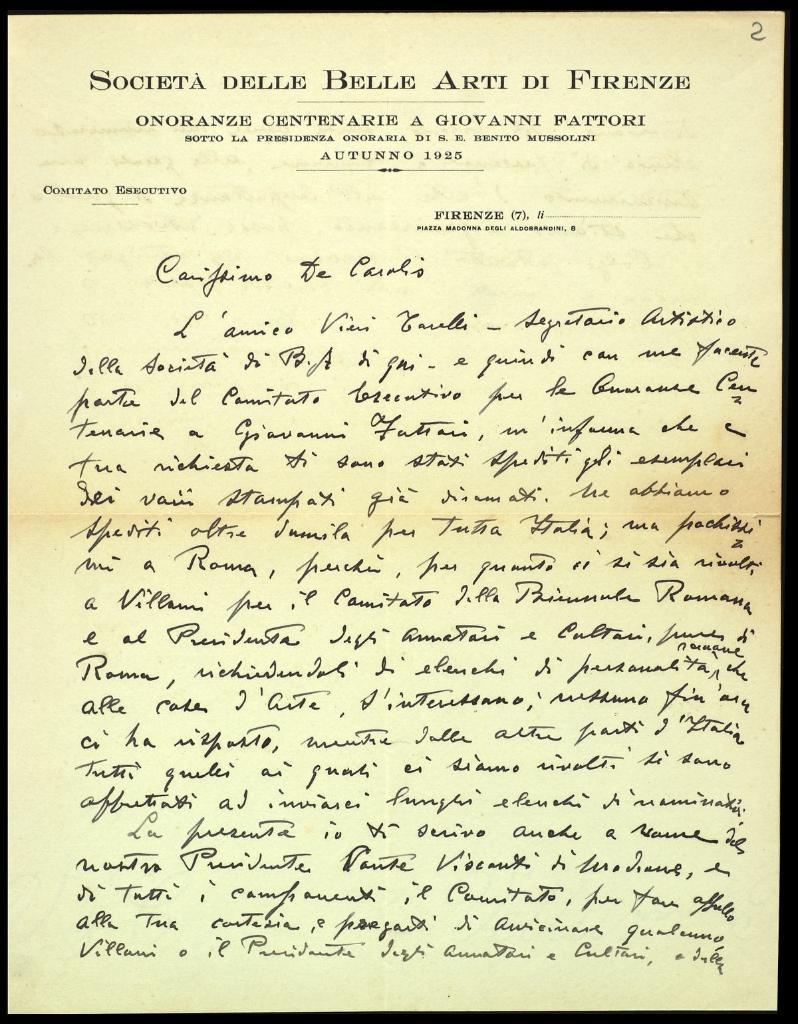 2
SOCIETÀ DELLE BELLE ARTI DI FIRENZE
ONORANZE CENTENARIE A GIOVANNI FATTORI
SOTTO LA PRESIDENZA ONORARIA DI S. E. BENITO MUSSOLINI
AUTUNNO 1925
COMITATO ESECUTIVO
FIRENZE (7), li
PIAZZA MADONNA DEGLI ALDOBRANDINI, 8
Carissimo De Carolis
L'amico Vieri Torelli - Segretario Artistico
della Società di B. A. di qui - e quindi con me facente
parte del Comitato Esecutivo per le Onoranze Cen=
tenarie a Giovanni Fattori, m'informa che a
tua richiesta ti sono stati spediti gli esemplari
dei varii stampati già diramati. Ne abbiamo
spediti oltre dumila per tutta Italia; ma pochissi=
mi a Roma, perchè, per quanto ci si sia rivolti
a Villani per il Comitato della Biennale Romana
e al Presidente degli Amatori e Cultori, pure di
Roma, richiedendoli di elenchi di personalità romane che
alle cose d'Arte s'interessano; nessuno fin'ora
ci ha risposto, mentre dalle altre parti d'Italia
tutti quelli ai quali ci siamo rivolti si sono
affrettati ad inviarci lunghi elenchi di nominativi.
La presente io ti scrivo anche a nome del
nostro Presidente Conte Visconti di Modrone, e
di tutti i componenti il Comitato, per fare appello
alla tua cortesia, e pregarti di avvicinare qualcuno
Villani o il Presidente degli Amatori e Cultori, o della